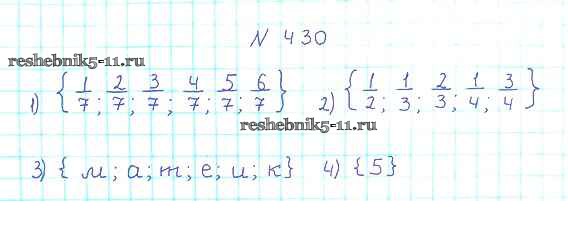 № 430
reshebnik5-11.ru
1) {1/7; 2/7; 3/7; 4/7; 5/7; 6/7} 2) {1/2; 1/3; 2/3; 1/4; 3/4}
reshebnik5-11.ru
3) { м; а; т; е; и; к} 4) {5}